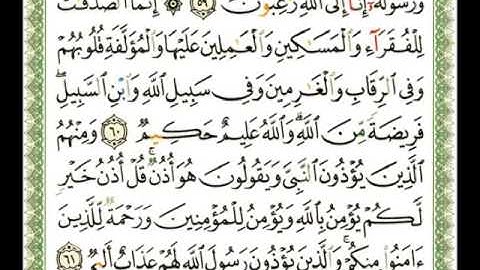 وَرَسُولُهُۥٓ إِنَّآ إِلَى ٱللَّهِ رَٰغِبُونَ ٥٩ ۞ إِنَّمَا ٱلصَّدَقَٰتُ
لِلْفُقَرَآءِ وَٱلْمَسَٰكِينِ وَٱلْعَٰمِلِينَ عَلَيْهَا وَٱلْمُؤَلَّفَةِ قُلُوبُهُمْ
وَفِى ٱلرِّقَابِ وَٱلْغَٰرِمِينَ وَفِى سَبِيلِ ٱللَّهِ وَٱبْنِ ٱلسَّبِيلِ ۖ
فَرِيضَةً مِّنَ ٱللَّهِ ۗ وَٱللَّهُ عَلِيمٌ حَكِيمٌ ٦٠ وَمِنْهُمُ
ٱلَّذِينَ يُؤْذُونَ ٱلنَّبِىَّ وَيَقُولُونَ هُوَ أُذُنٌ ۚ قُلْ أُذُنُ خَيْرٍ
لَّكُمْ يُؤْمِنُ بِٱللَّهِ وَيُؤْمِنُ لِلْمُؤْمِنِينَ وَرَحْمَةٌ لِّلَّذِينَ
ءَامَنُوا۟ مِنكُمْ ۚ وَٱلَّذِينَ يُؤْذُونَ رَسُولَ ٱللَّهِ لَهُمْ عَذَابٌ أَلِيمٌ ٦١